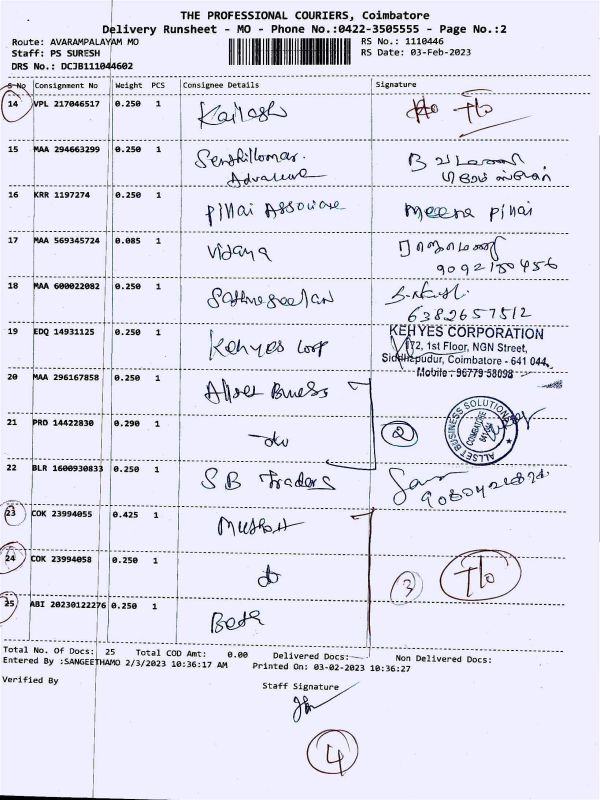 THE PROFESSIONAL COURIERS, Coimbatore
Delivery Runsheet - MO - Phone No.:0422-3505555 - Page No.:2
Route: AVARAMPALAYAM MO RS No.: 1110446
Staff: PS SURESH RS Date: 03-Feb-2023
DRS No.: DCJB111044602
S No Consignment No Weight PCS Consignee Details Signature
14 VPL 217046517 0.250 1 Kailash T/o
15 MAA 294663299 0.250 1 Senthilkumar.
Advance
16 KRR 1197274 0.250 1 Pillai Associate Meena Pillai
17 MAA 569345724 0.085 1 Vidaya
9092150456
18 MAA 600022082 0.250 1
6382657512
19 EDQ 14931125 0.250 1 Kehyes Corp KEHYES CORPORATION
172, 1st Floor, NGN Street,
Siddhapudur, Coimbatore - 641 044.
Mobile : 96779 58098
20 MAA 296167858 0.250 1
21 PRO 14422830 0.290 1 do 2 ALLSET BUSINESS SOLUTIONS COIMBATORE
22 BLR 1600930833 0.250 1 SB Traders
23 COK 23994055 0.425 1
24 COK 23994058 0.250 1 do 3 T/o
25 ABI 20230122276 0.250 1
Total No. Of Docs: 25 Total COD Amt: 0.00 Delivered Docs: Non Delivered Docs:
Entered By :SANGEETHAMO 2/3/2023 10:36:17 AM Printed On: 03-02-2023 10:36:27
Verified By Staff Signature
4